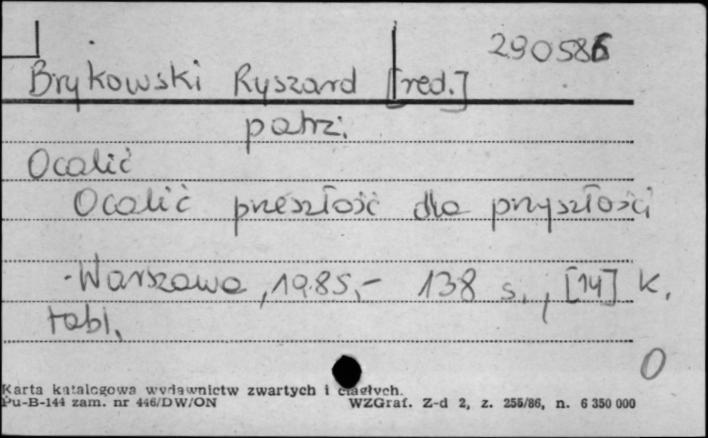 290586
Brykowski Ryszard [red.]
patrz:
Ocalić
Ocalić przeszłość dla przyszłości
.- Warszawa, 1985,- 138 s., [14] k.
tabl.
0
Karta katalogowa wydawnictw zwartych i ciągłych.
Pu-B-144 zam. nr 446/DW/ON WZGraf. Z-d 2, z. 255/86, n. 6 350 000